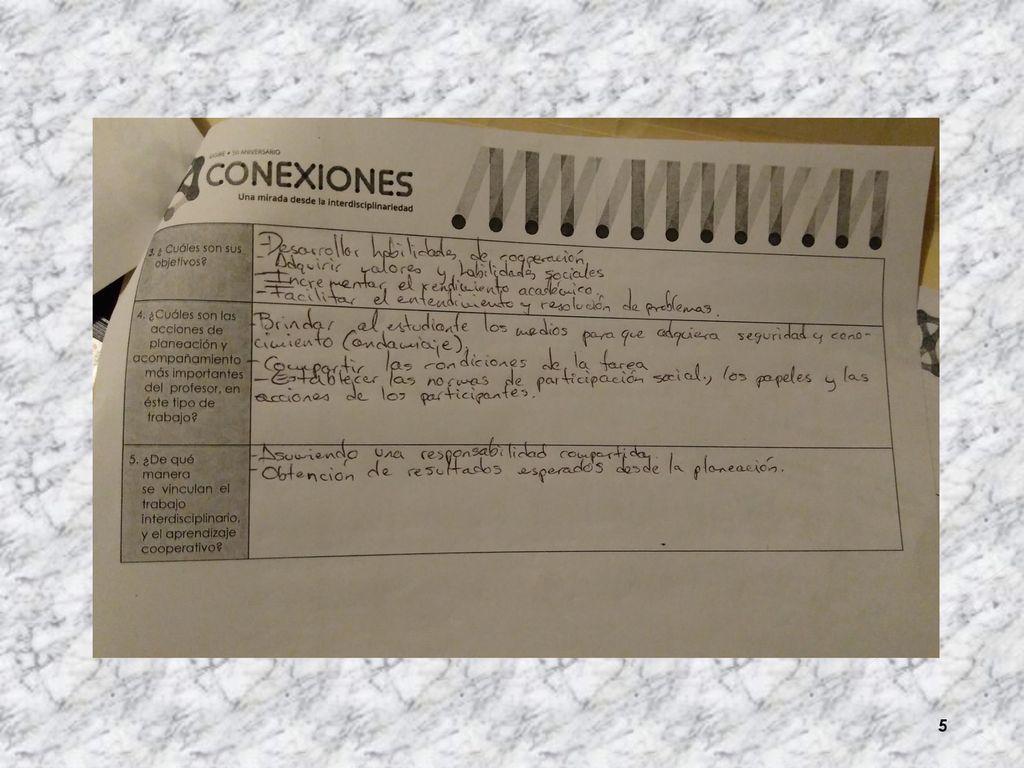 DGIRE • 50 ANIVERSARIO
CONEXIONES
Una mirada desde la interdisciplinariedad
3. ¿ Cuáles son sus
objetivos?
- Desarrollar habilidades de cooperación
- Adquirir valores y habilidades sociales
- Incrementar el rendimiento académico.
- Facilitar el entendimiento y resolución de problemas.
4. ¿Cuáles son las
acciones de
planeación y
acompañamiento
más importantes
del profesor, en
éste tipo de
trabajo?
- Brindar al estudiante los medios para que adquiera seguridad y cono-
cimiento (andamiaje),
- Compartir las condiciones de la tarea
- Establecer las normas de participación social, los papeles y las
acciones de los participantes.
5. ¿De qué
manera
se vinculan el
trabajo
interdisciplinario,
y el aprendizaje
cooperativo?
- Asumiendo una responsabilidad compartida.
- Obtención de resultados esperados desde la planeación.
5